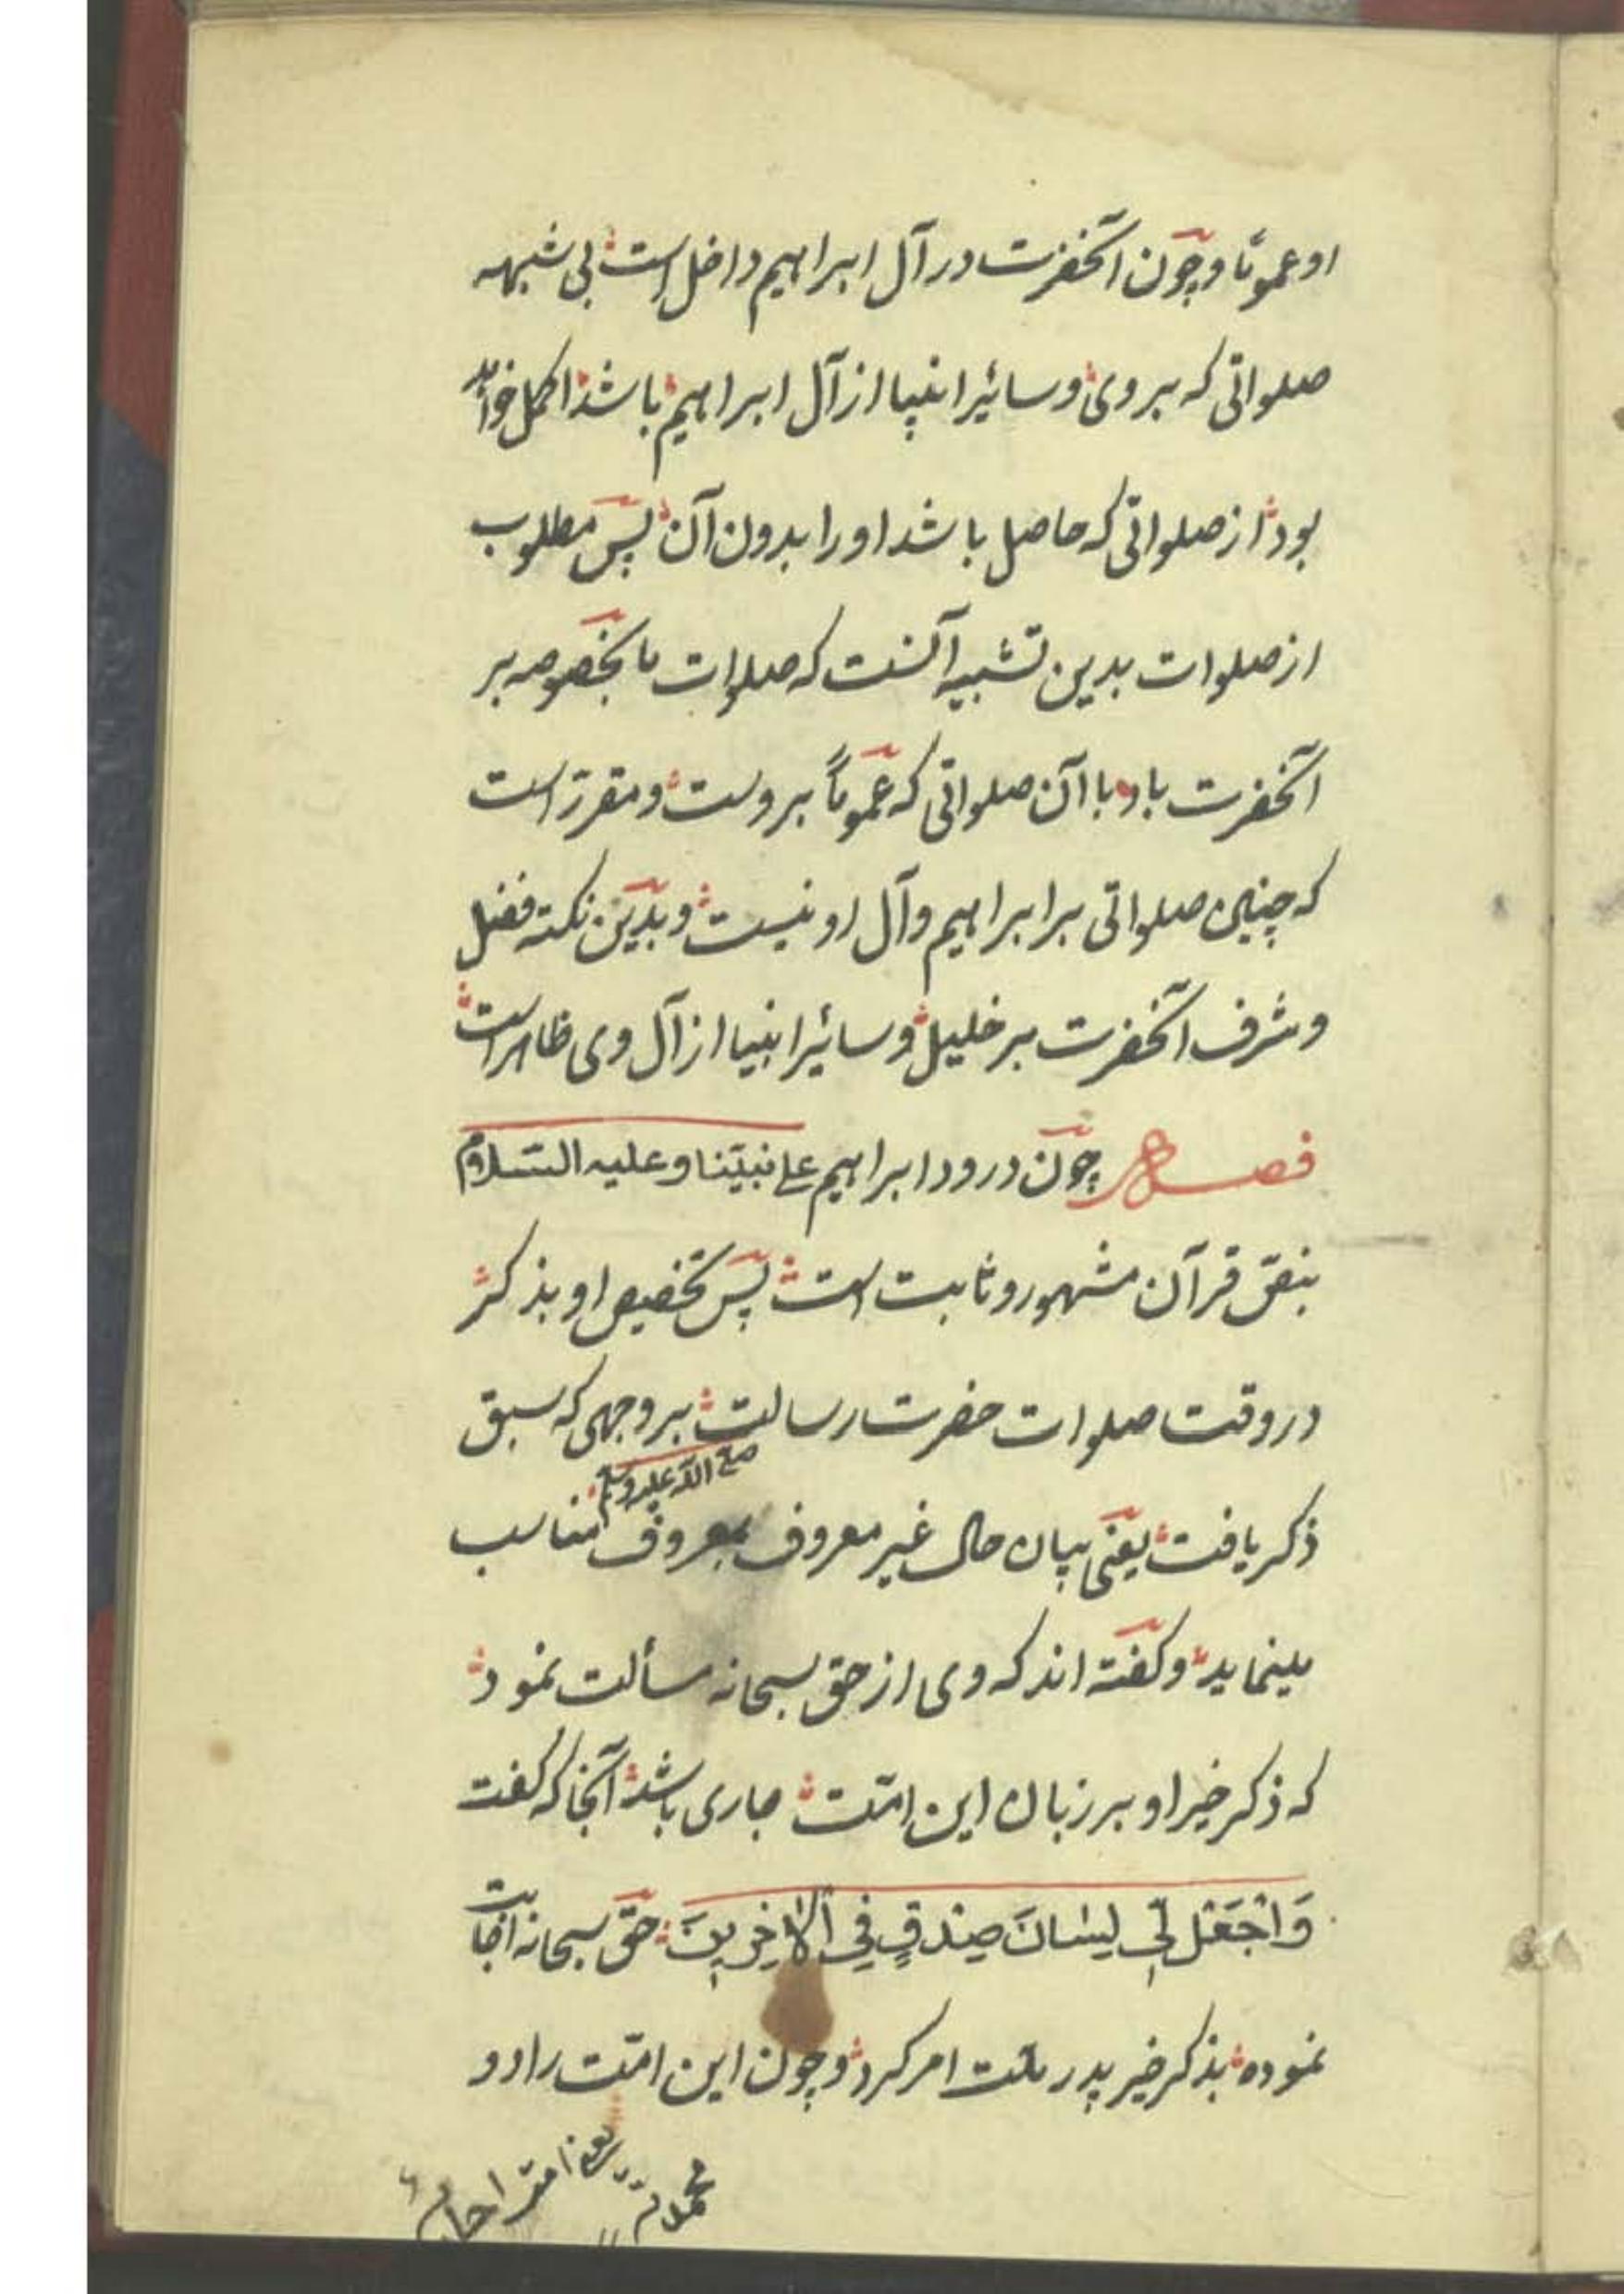 او عمومًا و چون آنحضرت در آل ابراهیم داخل است بی شبهه
صلواتی که بر وی و سائیر انبیا از آل ابراهیم باشد اکمل خواهد
بود از صلواتی که حاصل باشد او را بدون آن پس مطلوب
از صلوات بدین تشبیه آنست که صلوات ما بخصوصه بر
آنحضرت باد با آن صلواتی که عموماً بروست و مقرّر است
که چنین صلواتی بر ابراهیم و آل او نیست و بدین نکته فضل
و شرف آنحضرت بر خلیل و سائیر انبیا از آل وی ظاهر است
فصل چون درود ابراهیم علی نبیّنا و علیه السّلام
بنصّ قرآن مشهور و ثابت است پس تخصیص او بذکر
در وقت صلوات حضرت رسالت بر وجهی که سبق
صلی الله علیه وسلم
ذکر یافت یعنی بیان حال غیر معروف بمعروف مناسب
مینماید و گفته اند که وی از حق سبحانه مسألت نمود
که ذکر خیر او بر زبان این امّت جاری باشد آنجا که گفت
وَاجْعَلْ لِي لِسَانَ صِدْقٍ فِي الْآخِرِينَ حق سبحانه اجابت
نموده بذکر خیر پدر ملت امر کرد و چون این امّت را دو